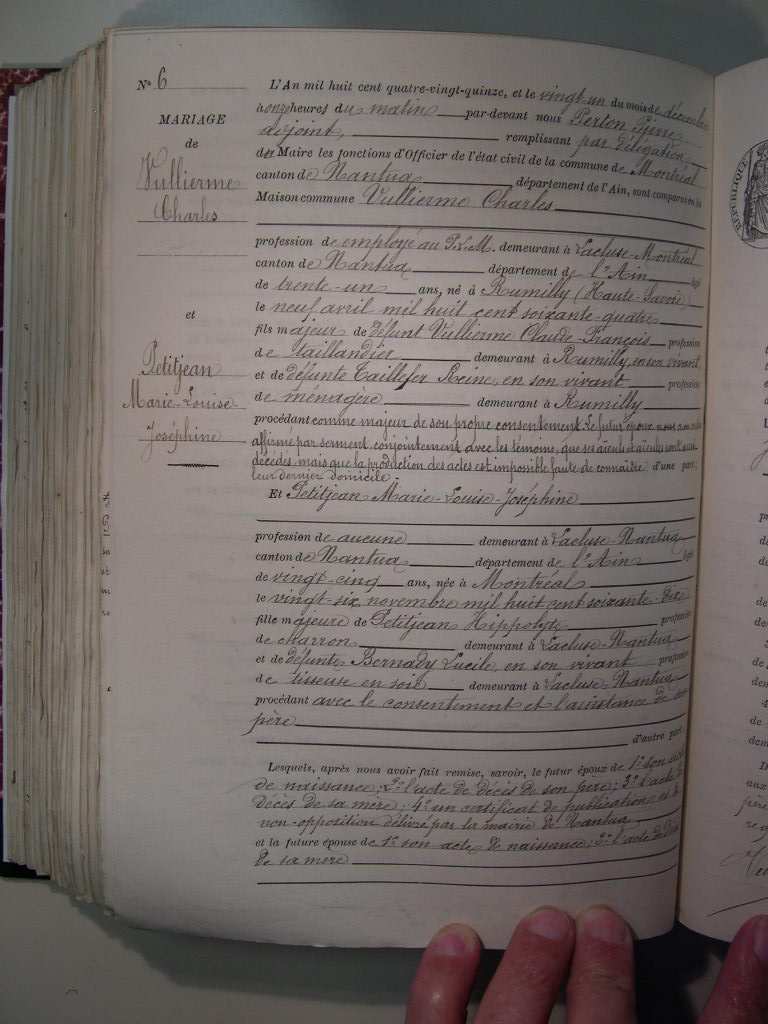 N° 6
MARIAGE
de
Vullierme
Charles
et
Petitjean
Marie-Louise-
Joséphine
L'An mil huit cent quatre-vingt-quinze, et le vingt-un du mois de décembre
à onze heures du matin par-devant nous Perton
adjoint, remplissant par délégation
du Maire les fonctions d'Officier de l'état civil de la commune de Montréal
canton de Nantua département de l'Ain, sont comparus en la
Maison commune Vullierme Charles
profession de employé au P.L.M. demeurant à Lacluse-Montréal
canton de Nantua département de l'Ain âgé
de trente-un ans, né à Rumilly (Haute-Savoie)
le neuf avril mil huit cent soixante-quatre
fils majeur de défunt Vullierme Claude-François profession
de taillandier demeurant à Rumilly, en son vivant
et de défunte Taillefer Reine, en son vivant profession
de ménagère demeurant à Rumilly
procédant comme majeur de son propre consentement. Le futur époux nous a
affirmé par serment, conjointement avec les témoins, que ses aïeuls et aïeules sont
décédés, mais que la production des actes est impossible faute de connaître d'une part;
leur dernier domicile.
Et Petitjean Marie-Louise-Joséphine
profession de aucune demeurant à Lacluse-Nantua
canton de Nantua département de l'Ain âgée
de vingt-cinq ans, née à Montréal
le vingt-six novembre mil huit cent soixante-dix
fille majeure de Petitjean Hippolyte profession
de charron demeurant à Lacluse-Nantua
et de défunte Bernady Lucile, en son vivant profession
de tisseuse en soie demeurant à Lacluse-Nantua
procédant avec le consentement et l'assistance de son
père
d'autre part.
Lesquels, après nous avoir fait remise, savoir, le futur époux de 1° son acte
de naissance; 2° l'acte de décès de son père; 3° l'acte de
décès de sa mère; 4° un certificat de publication et de
non-opposition délivré par la mairie de Nantua
et la future épouse de 1° son acte de naissance; 2° l'acte de décès
de sa mère
RÉPUBLIQUE